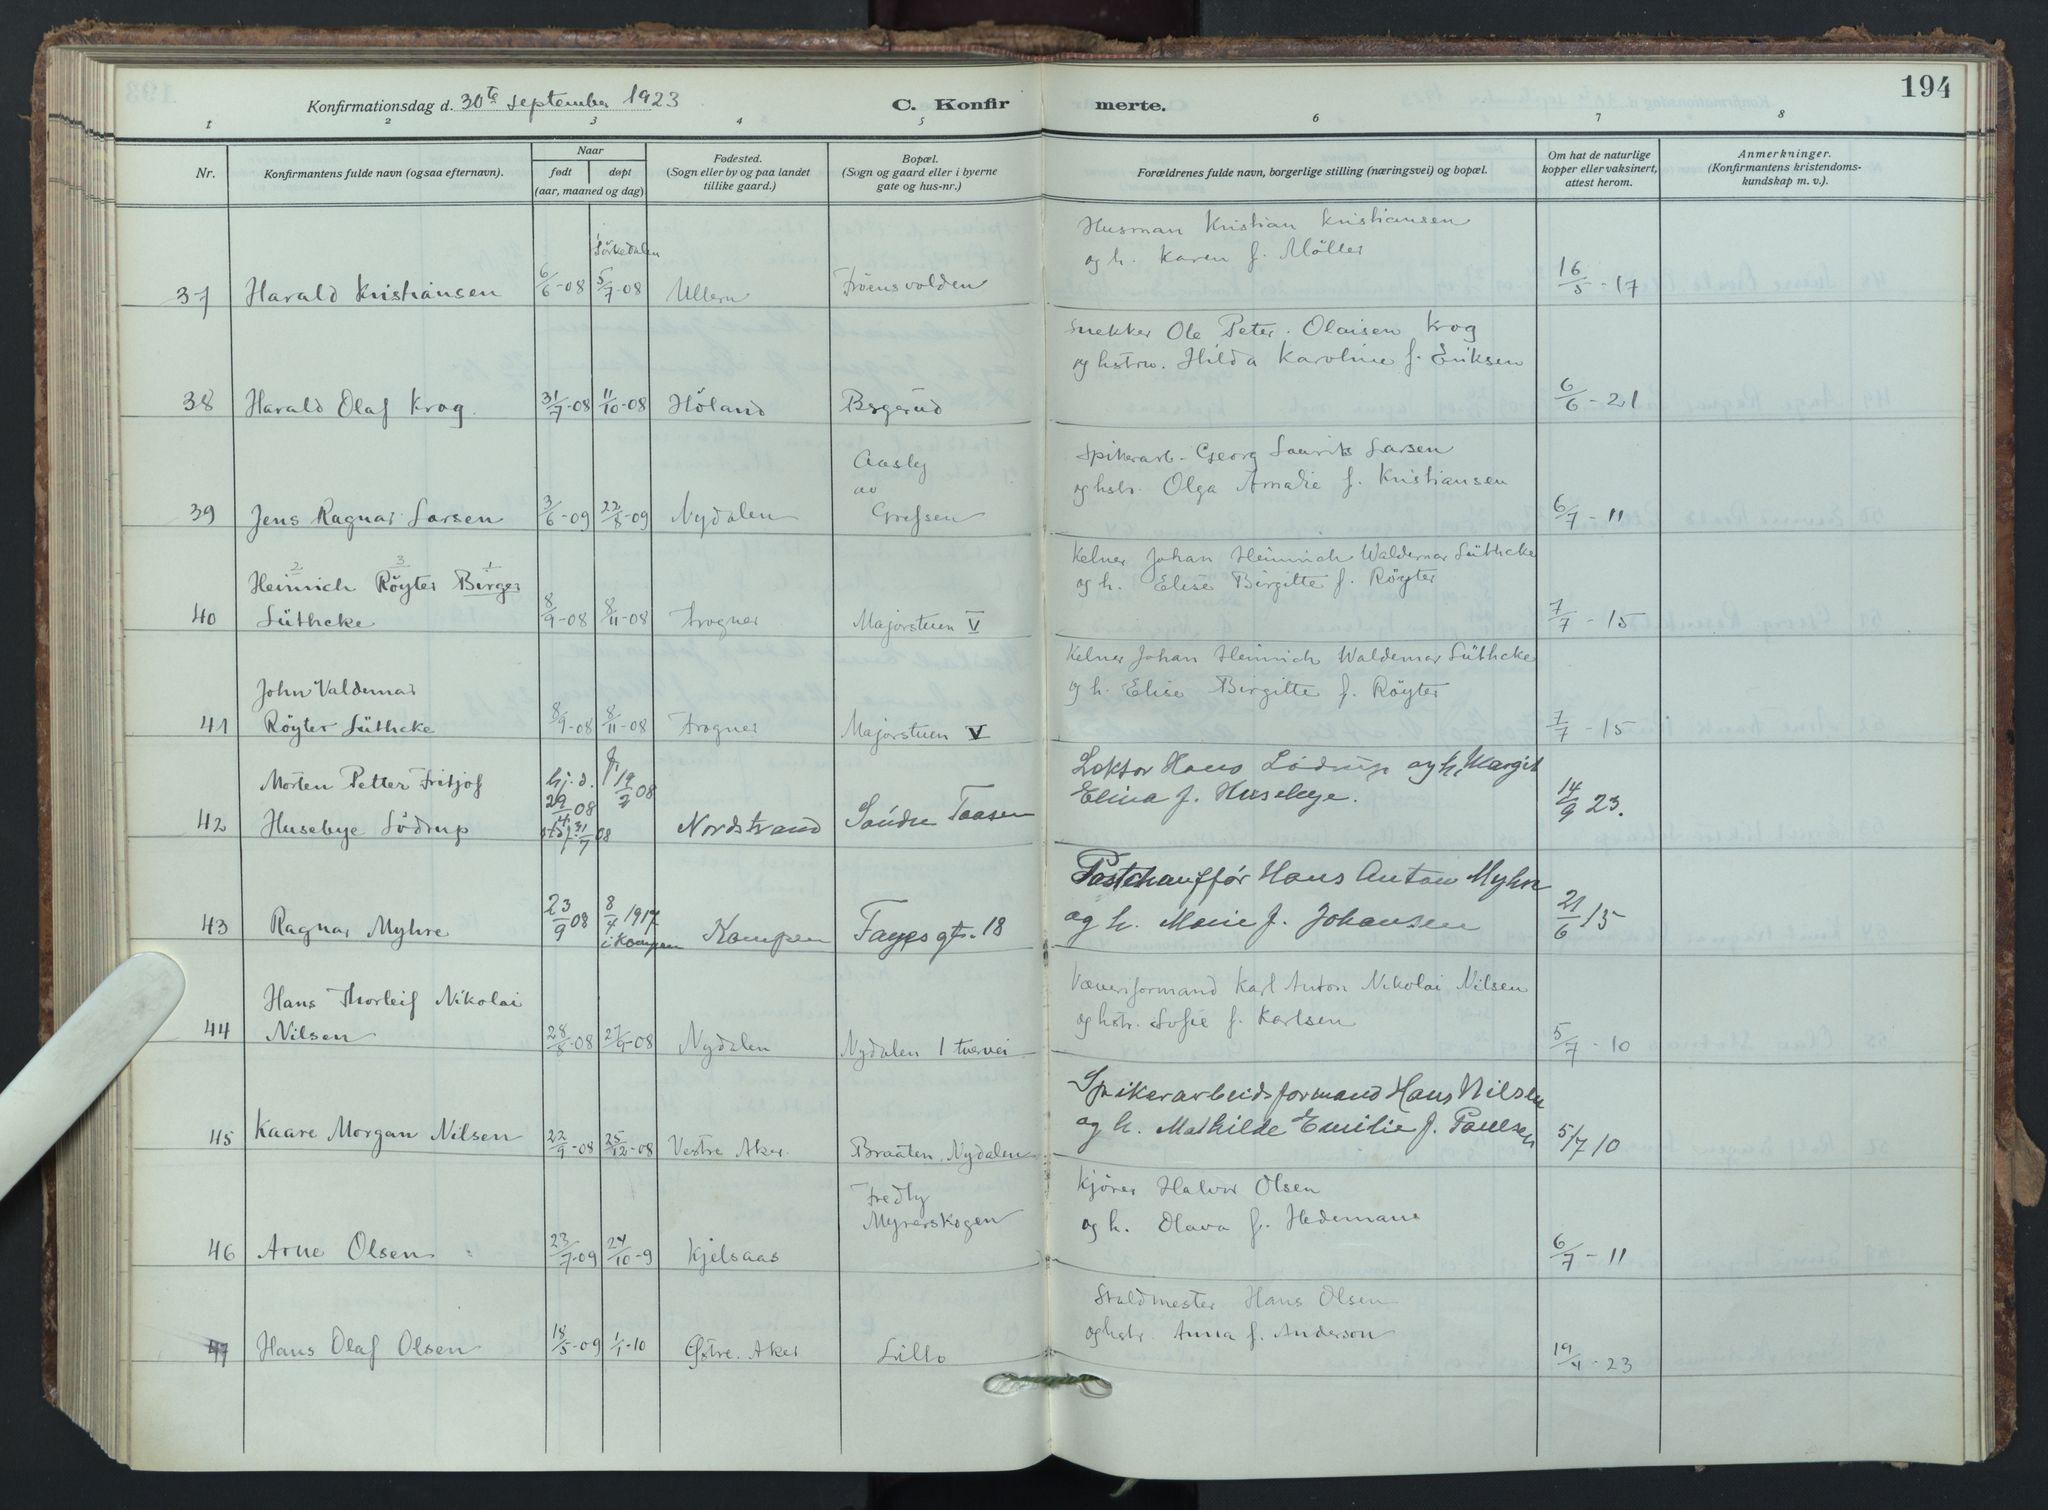 194
Konfirmationsdag d. 30te september 1923
C. Konfirmerte.
1 2 3 4 5 6 7 8
Nr.
Konfirmantens fulde navn (ogsaa efternavn).
Naar
født døpt
(aar, maaned og dag)
Fødested.
(Sogn eller by og paa landet
tillike gaard.)
Bopæl.
(Sogn og gaard eller i byerne
gate og hus-nr.)
Forældrenes fulde navn, borgerlige stilling (næringsvei) og bopæl.
Om hat de naturlige
kopper eller vaksinert,
attest herom.
Anmerkninger.
(Konfirmantens kristendoms-
kundskap m. v.).
Husman Kristian Kristiansen
og h. Karen f. Möller
i Sörkedalen
37 Harald Kristiansen 6/6-08 5/7-08 Ullern Fröensvolden 16/5-17
Snekker Ole Peter Olaisen Krog
og hstru. Hilda Karoline f. Eriksen
38 Harald Olaf Krog. 31/7-08 11/10-08 Höland Bergerud 6/6-21
Spikerarb- Georg Laurits Larsen
og hstr. Olga Amalie f. Kristiansen
Aasly
av
39 Jens Ragnar Larsen 3/6-09 22/8-09 Nydalen Grefsen 6/7-11
Kelner Johan Heinrich Waldemar Lüthcke
og h. Elise Birgitte f. Röyter
2 3 1
Heinrich Röyter Birger
40 Lüthcke 8/9-08 8/11-08 Frogner Majorstuen V 7/7-15
Kelner Johan Heinrich Waldemar Lüthcke
og h. Elise Birgitte f. Röyter
John Valdemar
41 Röyter Lüthcke 8/9-08 8/11-08 Frogner Majorstuen V 7/7-15
Lektor Hans Lödrup og h. Margit
Elina f. Husebye.
Morten Petter Fritjof hj.d. 29/4 08 19/7 08
42 Husebye Lödrup 31/7 08 Nordstrand Söndre Taasen 14/9 23.
Postchaufför Hans Anton Myhre
og h. Marie f. Johansen
43 Ragnar Myhre 23/9 08 8/4 1917 i Kampen Kampen Fayes gt. 18 21/6 15
Væveriformand Karl Anton Nikolai Nilsen
og hstr. Sofie f. Karlsen
Hans Thorleif Nikolai
44 Nilsen 28/8-08 27/9-08 Nydalen Nydalen 1 tvervei 5/7-10
Spikerarbeidsformand Hans Nilsen
og h. Mathilde Emilie f. Paulsen
45 Kaare Morgan Nilsen 22/9-08 25/12-08 Vestre Aker. Braaten, Nydalen 5/7 10
Kjörer Halvor Olsen
og h. Olava f. Hedeman
Fredly
Myrerskogen
46 Arne Olsen 23/7-09 24/10-9 Kjelsaas 6/7-11
Staldmester Hans Olsen
og hstr. Anna f. Anderson
47 Hans Olaf Olsen 18/5-09 1/1-10 Östre. Aker Lillo 19/4-23